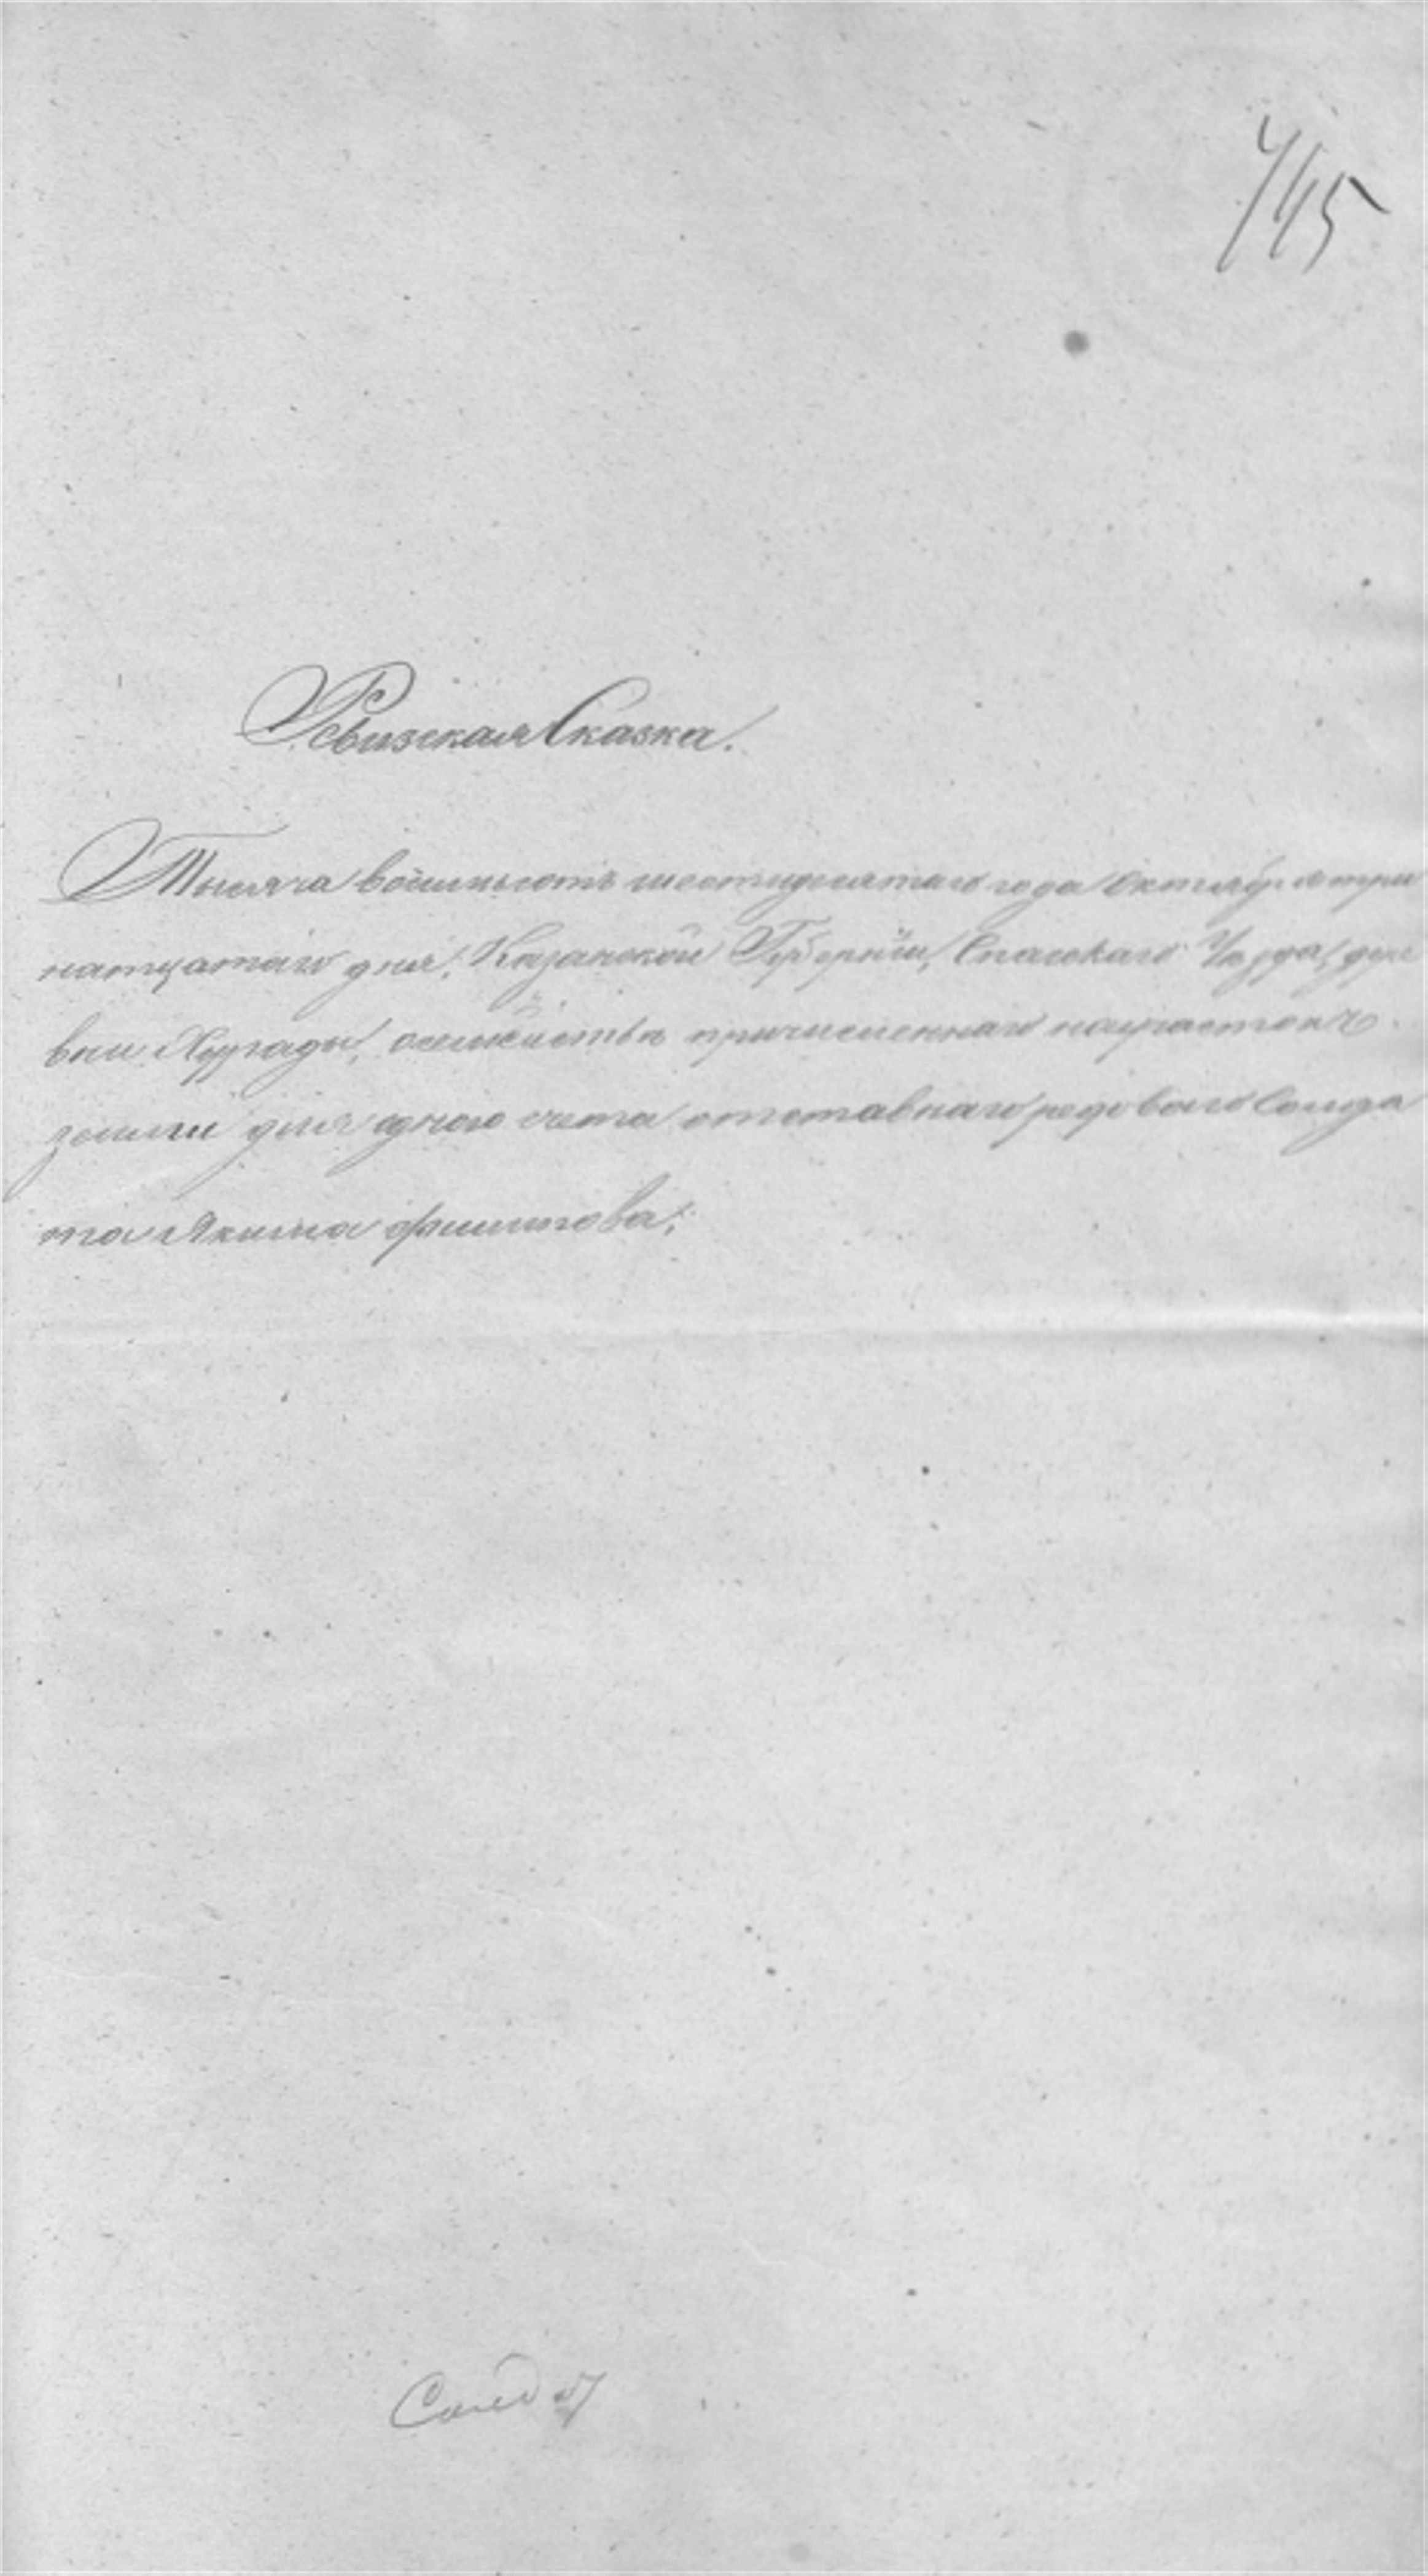 445
Ревизская Сказка.
Тысяча восимьсотъ шестидесятаго года Октября три
натцатаго дня, Казанской Губернiи, Спаскаго Уезда, дере
вни Хурады, осемействе причисленнаго научасток
земли для одного счета отставнаго редоваго Солда
та Якима Филипова.